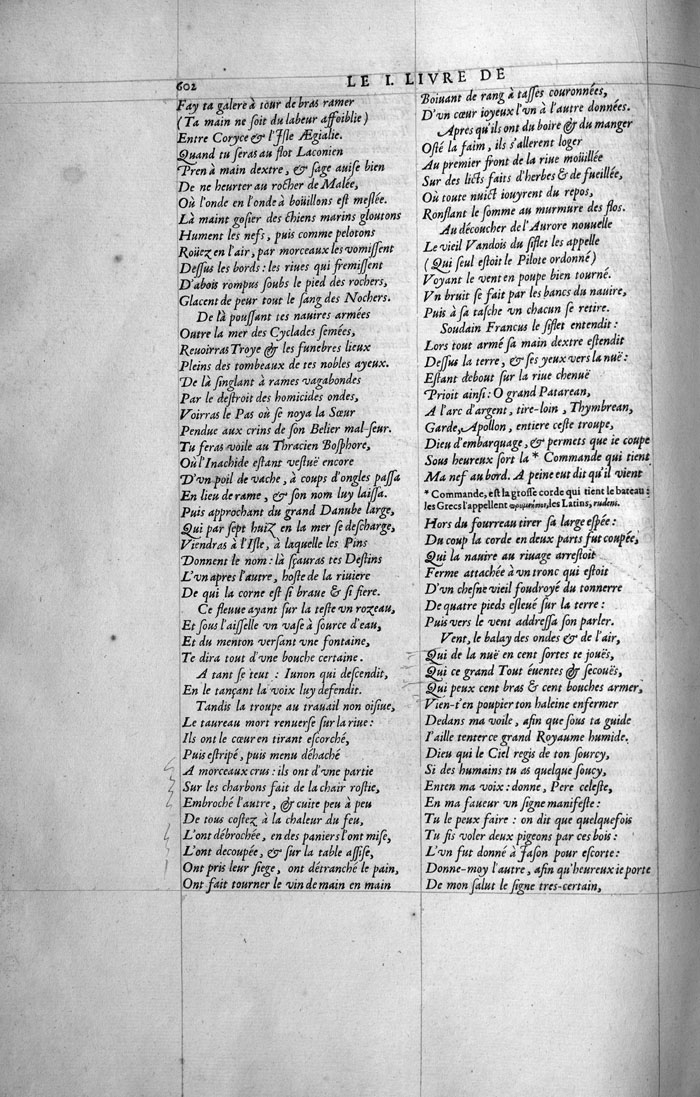 602
LE I. LIVRE DE
Fay ta galere à tour de bras ramer
(Ta main ne ſoit du labeur affoiblie)
Entre Coryce & l'Iſle Ægialie.
Quand tu ſeras au flot Laconien
Pren à main dextre, & ſage auiſe bien
De ne heurter au rocher de Malée,
Où l'onde en l'onde à boüillons eſt meſlée.
Là maint goſier des chiens marins gloutons
Hument les nefs, puis comme pelotons
Roüez en l'air, par morceaux les vomiſſent
Deſſus les bords: les riues qui fremiſſent
D'abois rompus ſoubs le pied des rochers,
Glacent de peur tout le ſang des Nochers.
De là pouſſant tes nauires armées
Outre la mer des Cyclades ſemées,
Reuoirras Troye & les funebres lieux
Pleins des tombeaux de tes nobles ayeux.
De là ſinglant à rames vagabondes
Par le deſtroit des homicides ondes,
Voirras le Pas où ſe noya la Sœur
Pendue aux crins de ſon Belier mal-ſeur.
Tu feras voile au Thracien Boſphore,
Où l'Inachide eſtant veſtuë encore
D'vn poil de vache, à coups d'ongles paſſa
En lieu de rame, & ſon nom luy laiſſa.
Puis approchant du grand Danube large,
Qui par ſept huiz en la mer ſe deſcharge,
Viendras à l'Iſle, à laquelle les Pins
Donnent le nom: là ſçauras tes Deſtins
L'vn apres l'autre, hoſte de la riuiere
De qui la corne eſt ſi braue & ſi fiere.
Ce fleuue ayant ſur la teſte vn rozeau,
Et ſous l'aiſſelle vn vaſe à ſource d'eau,
Et du menton verſant vne fontaine,
Te dira tout d'vne bouche certaine.
A tant ſe teut: Iunon qui deſcendit,
En le tançant la voix luy defendit.
Tandis la troupe au trauail non oiſiue,
Le taureau mort renuerſe ſur la riue:
Ils ont le cœur en tirant eſcorché,
Puis eſtripé, puis menu déhaché
A morceaux crus: ils ont d'vne partie
Sur les charbons fait de la chair roſtie,
Embroché l'autre, & cuite peu à peu
De tous coſtez à la chaleur du feu,
L'ont débrochée, en des paniers l'ont miſe,
L'ont decoupée, & ſur la table aſſiſe,
Ont pris leur ſiege, ont détranché le pain,
Ont fait tourner le vin de main en main
Boiuant de rang à taſſes couronnées,
D'vn cœur ioyeux l'vn à l'autre données.
Apres qu'ils ont du boire & du manger
Oſté la faim, ils s'allerent loger
Au premier front de la riue moüillée
Sur des licts faits d'herbes & de fueillée,
Où toute nuict iouyrent du repos,
Ronflant le ſomme au murmure des flos.
Au découcher de l'Aurore nouuelle
Le vieil Vandois du ſiflet les appelle
(Qui ſeul eſtoit le Pilote ordonné)
Voyant le vent en poupe bien tourné.
Vn bruit ſe fait par les bancs du nauire,
Puis à ſa taſche vn chacun ſe retire.
Soudain Francus le ſiflet entendit:
Lors tout armé ſa main dextre eſtendit
Deſſus la terre, & ſes yeux vers la nuë:
Eſtant debout ſur la riue chenuë
Prioit ainſi: O grand Patarean,
A l'arc d'argent, tire-loin, Thymbrean,
Garde, Apollon, entiere ceſte troupe,
Dieu d'embarquage, & permets que ie coupe
Sous heureux ſort la * Commande qui tient
Ma nef au bord. A peine eut dit qu'il vient
* Commande, eſt la groſſe corde qui tient le bateau:
les Grecs l'appellent , les Latins, rudens.
Hors du fourreau tirer ſa large eſpée:
Du coup la corde en deux parts fut coupée,
Qui la nauire au riuage arreſtoit
Ferme attachée à vn tronc qui eſtoit
D'vn cheſne vieil foudroyé du tonnerre
De quatre pieds eſleué ſur la terre:
Puis vers le vent addreſſa ſon parler.
Vent, le balay des ondes & de l'air,
Qui de la nuë en cent ſortes te jouës,
Qui ce grand Tout éuentes & ſecouës,
Qui peux cent bras & cent bouches armer,
Vien-t'en poupier ton haleine enfermer
Dedans ma voile, afin que ſous ta guide
I'aille tenter ce grand Royaume humide.
Dieu qui le Ciel regis de ton ſourcy,
Si des humains tu as quelque ſoucy,
Enten ma voix: donne, Pere celeſte,
En ma faueur vn ſigne manifeſte:
Tu le peux faire: on dit que quelquefois
Tu fis voler deux pigeons par ces bois:
L'vn fut donné à Jaſon pour eſcorte:
Donne-moy l'autre, afin qu'heureux ie porte
De mon ſalut le ſigne tres-certain,